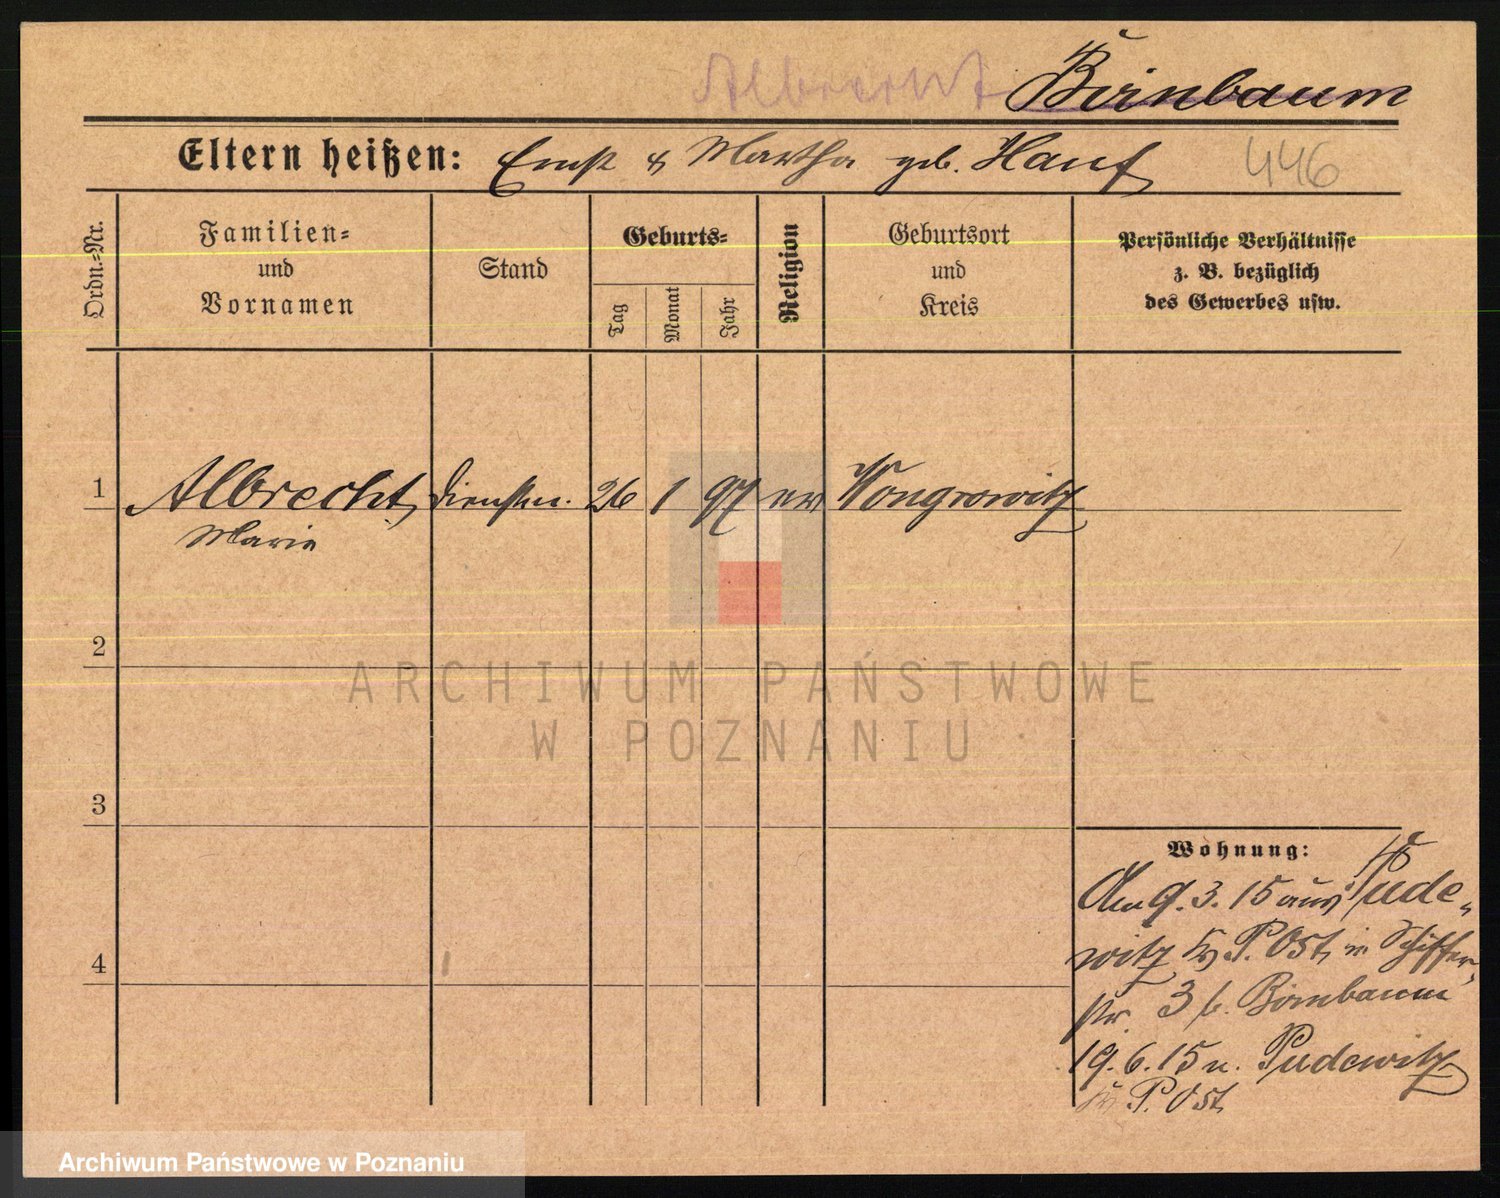 Albrecht Birnbaum
Eltern heißen: Ernst & Martha geb. Hanf 446
Ordn.-Nr.
Familien-
und
Vornamen
Stand
Geburts-
Tag
Monat
Jahr
Religion
Geburtsort
und
Kreis
Persönliche Verhältnisse
z. B. bezüglich
des Gewerbes usw.
1 Albrecht, Dienstm. 26 1 97 ev Wongrowitz
Marie
2
3
4
ARCHIWUM PAŃSTWOWE
W POZNANIU
Wohnung:
9.3.15 aus Pude-
witz Kr P. Ost, in Schiffer-
str. 3 b. Birnbaum
19.6.15 n. Pudewitz
Kr P. Ost
Archiwum Państwowe w Poznaniu